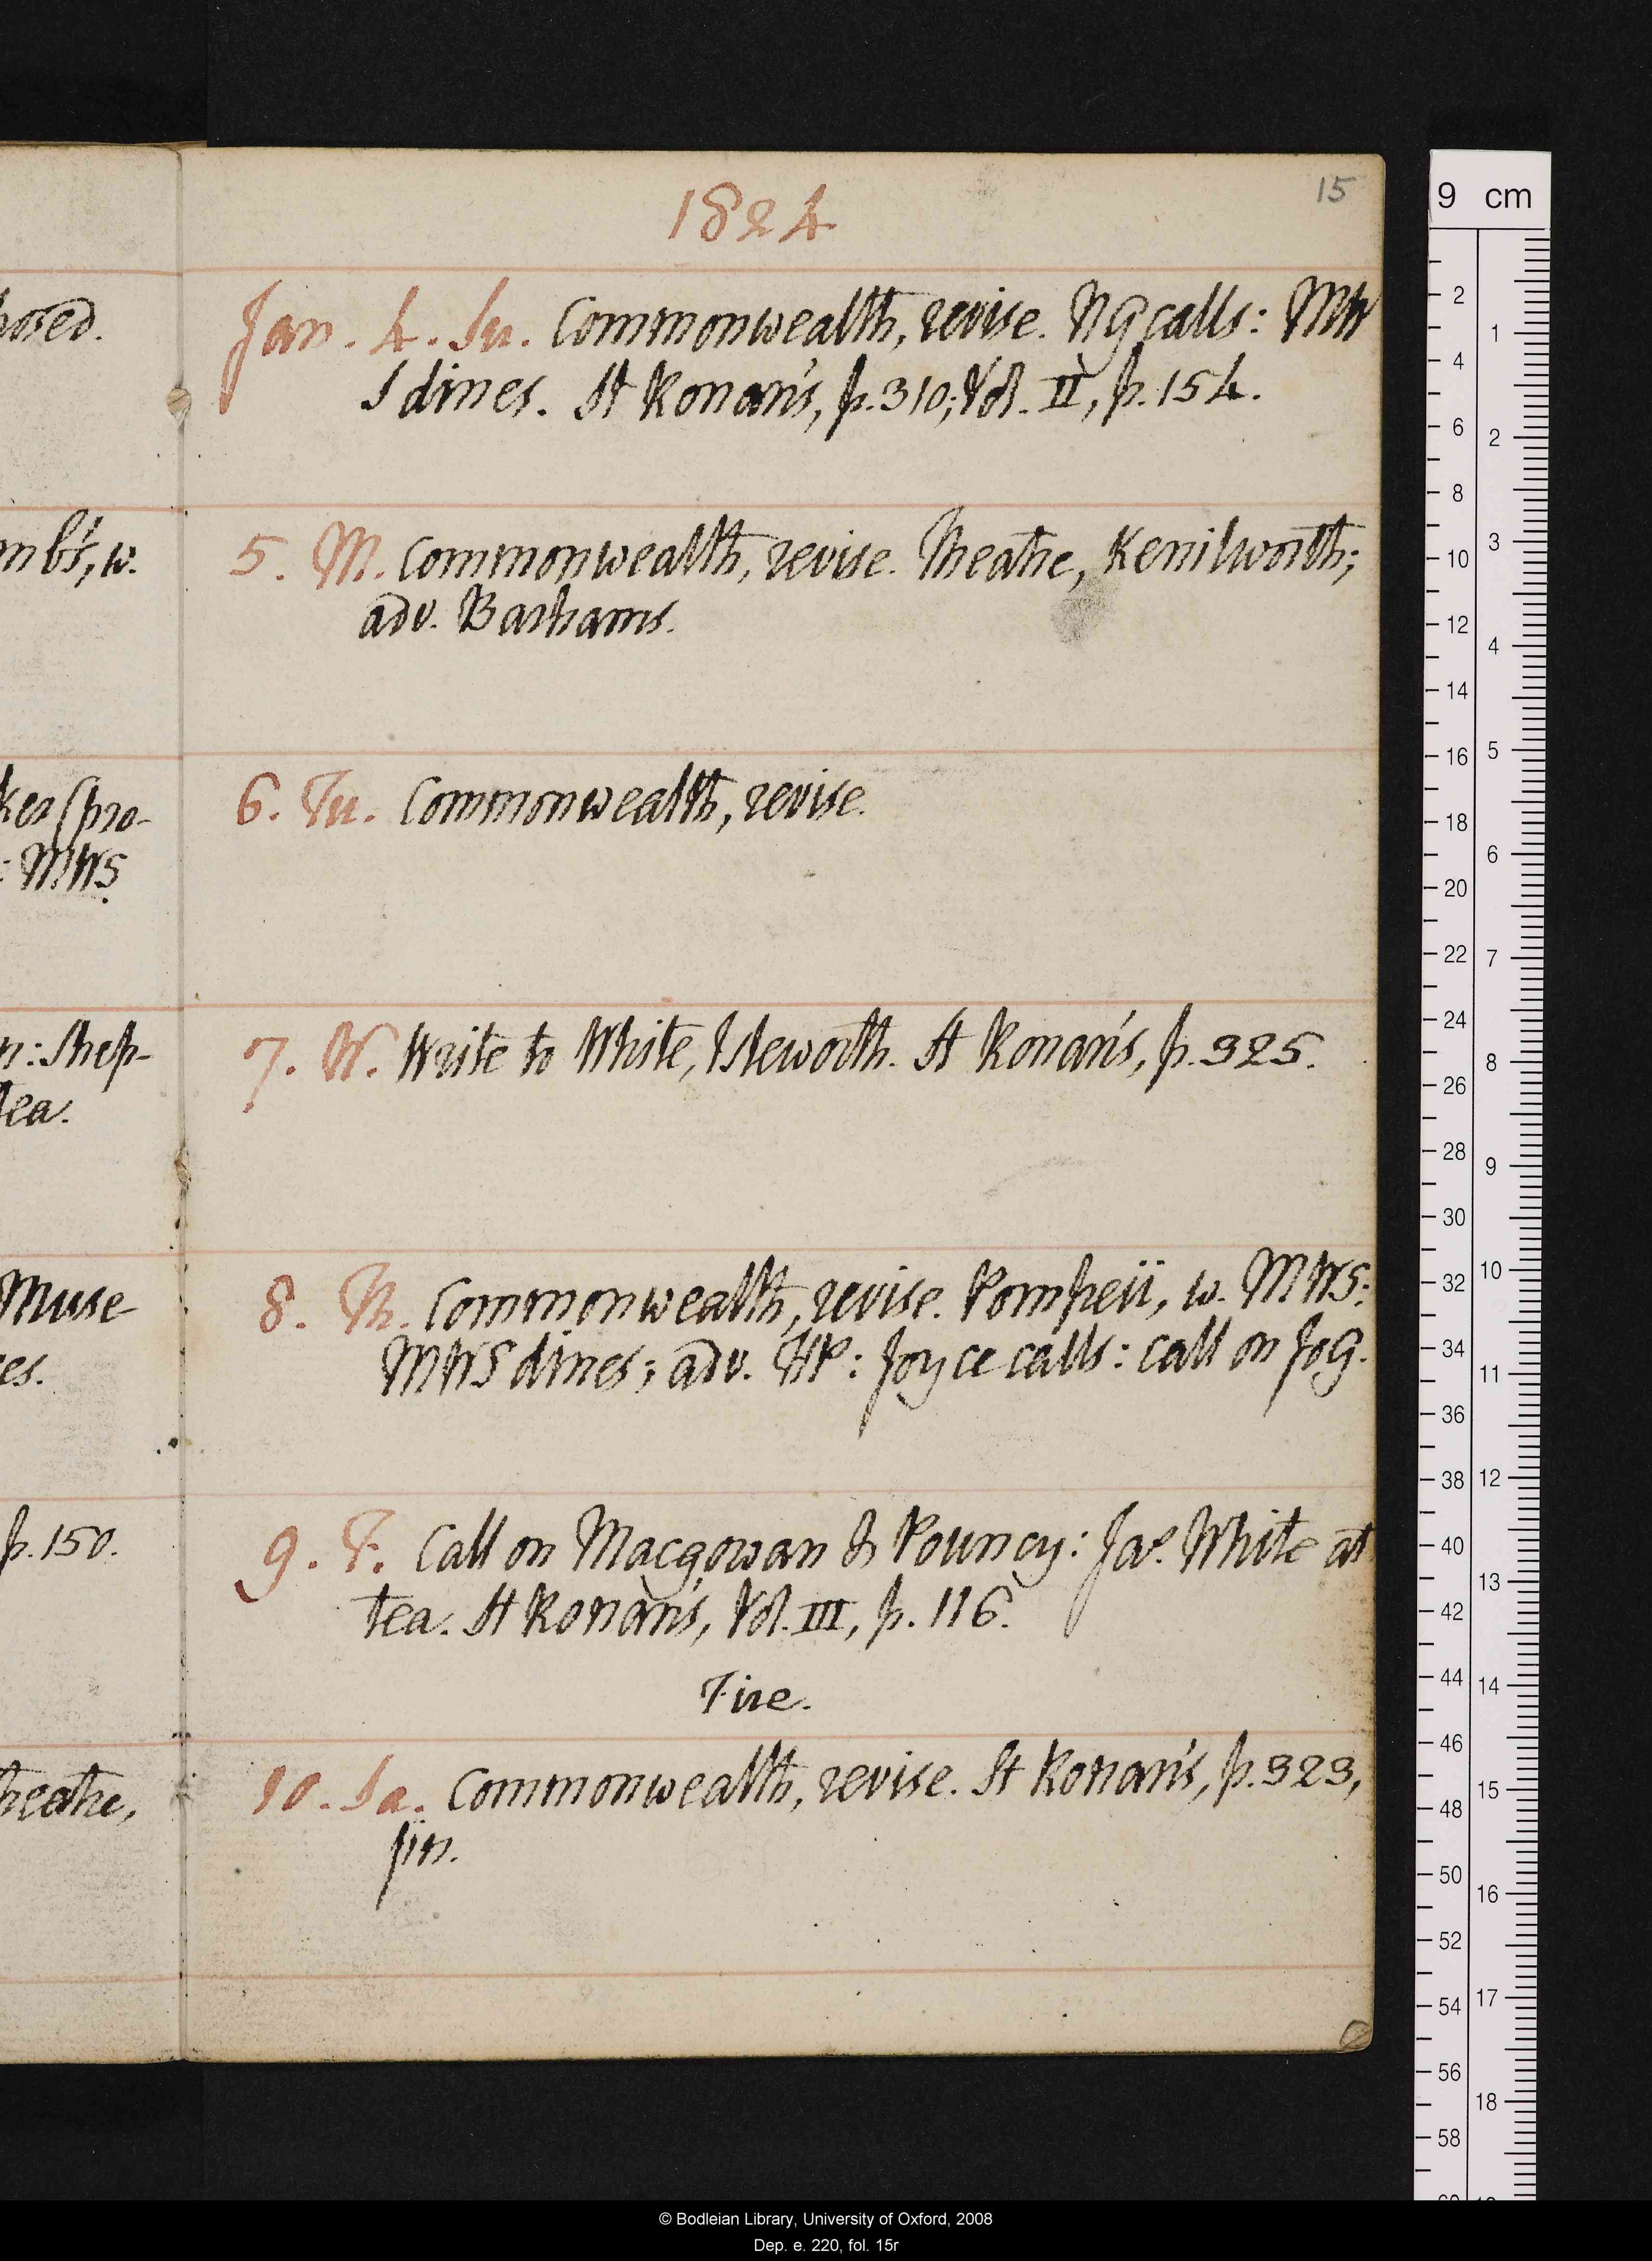 15
1824
hosed.
Jan. 4. Su. Commonwealth, revise. NG calls: MW
S dines. St Ronan's, p. 310; Vol. II, p. 154.
mb's, w.
5. M. Commonwealth, revise. Theatre, Kenilworth;
adv. Barhams.
ker (pro-
: MWS
6. Tu. Commonwealth, revise.
n: Shep-
tea.
7. W. Write to White, Isleworth. St Ronan's, p. 325.
Muse-
es.
8. Th. Commonwealth, revise. Pompeii, w. MWS:
MWS dines; adv. HP: Joyce calls: call on JoG.
p. 150.
9. F. Call on Macgowan & Pouncy: Jas. White at
tea. St Ronan's, Vol. III, p. 116.
Fire.
heatre,
10. Sa. Commonwealth, revise. St Ronan's, p. 323,
fin.
9 cm
2
4
6
8
10
12
14
16
18
20
22
24
26
28
30
32
34
36
38
40
42
44
46
48
50
52
54
56
58
1
2
3
4
5
6
7
8
9
10
11
12
13
14
15
16
17
18
© Bodleian Library, University of Oxford, 2008
Dep. e. 220, fol. 15r